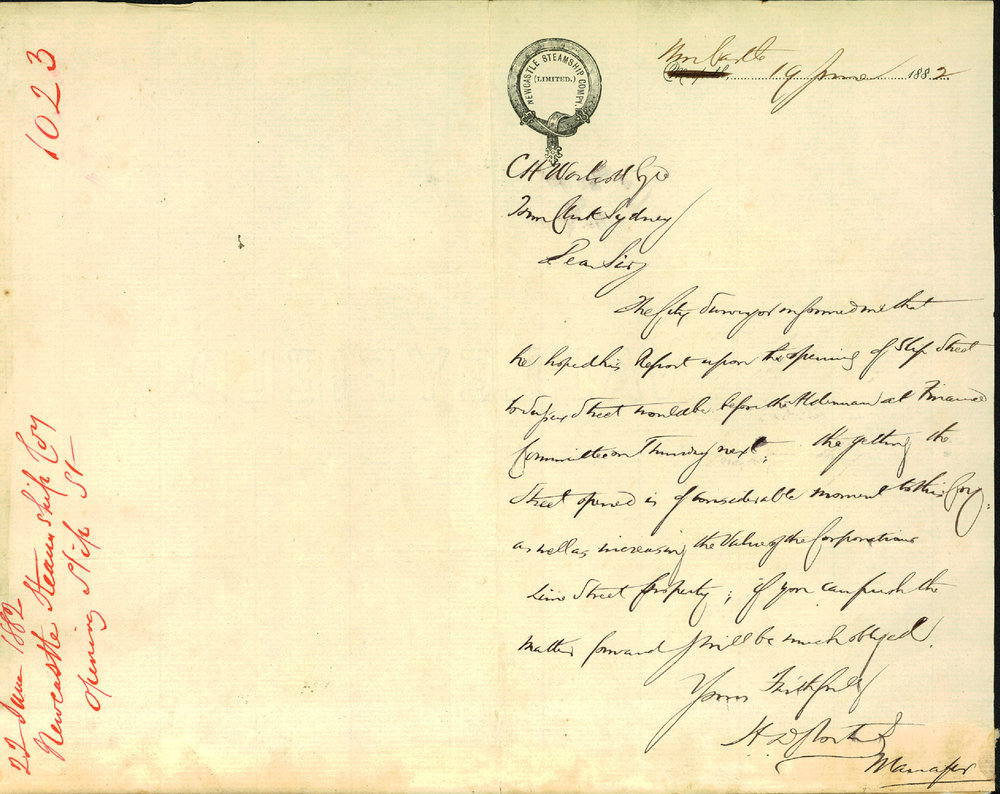 1023
22 June 1882
Newcastle Steam Ship Coy
Opening Slip St
NEWCASTLE STEAMSHIP COMPY.
(LIMITED.)
Newcastle
19 June 1882
C H Woolcott Esq
Town Clerk Sydney
Dear Sir
The City Surveyor informed me that
he hoped his Report upon the opening of Slip Street
to Sussex Street would be before the Aldermen at Finance
Committee on Thursday next; the getting the
Street opened is of considerable moment to this Coy.
as well as increasing the Value of the Corporations
Lime Street Property; if you can push the
matter forward I will be much obliged.
Yours Faithfully
Manager